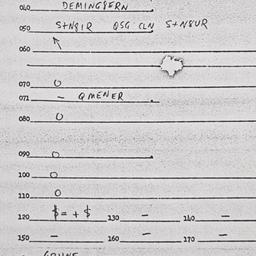 040 DEMING&ERN
050 S+N&IR QSG CLN S+N&UR
060
070 O
071 - QMENER
080 O
090 O
100 O
110 O
120 $= + $ 130 - 140 -
150 - 160 - 170 -